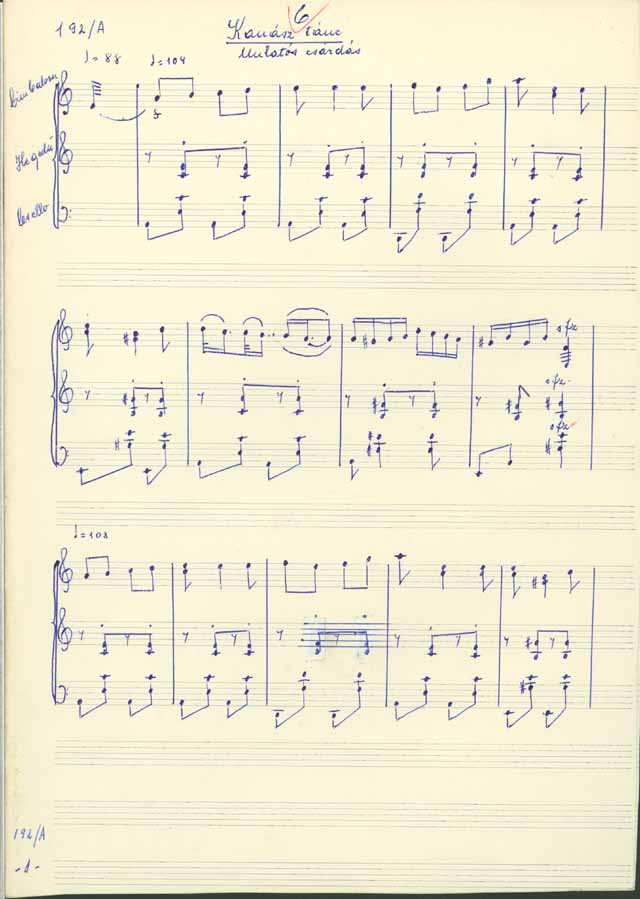 192/A
6
Kanász tánc
Mulatós csárdás
♩= 88 ♩= 104
Cimbalom
f
Hegedű
Cselló
sfz
sfz
sfz
♩= 108
192/A
-1-